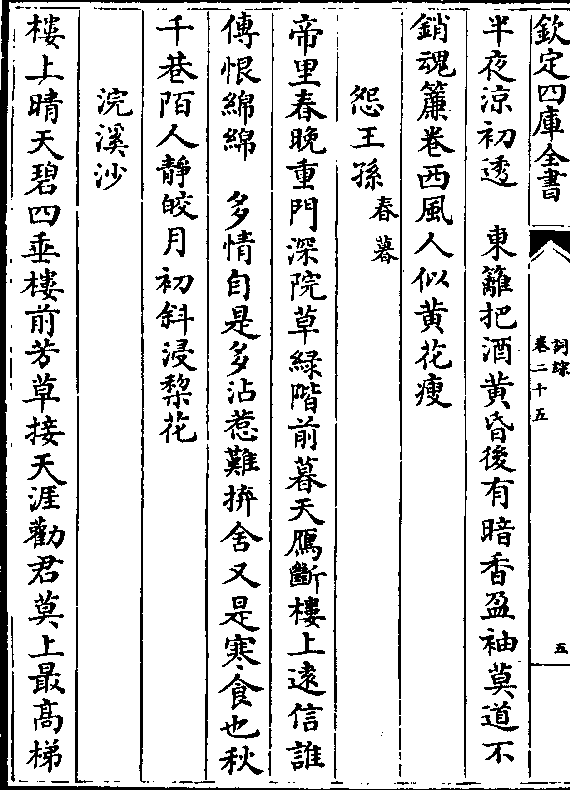 欽定四庫全書
詞綜
卷二十五
五
半夜涼初透　東籬把酒黄昏後有暗香盈袖莫道不
銷魂簾卷西風人似黄花瘦
怨王孫春暮
帝里春晚重門深院草緑階前暮天鴈斷樓上逺信誰
傳恨綿綿　多情自是多沾惹難拚舍又是寒食也秋
千巷陌人靜皎月初斜浸棃花
浣溪沙
樓上晴天碧四垂樓前芳草接天涯勸君莫上最髙梯